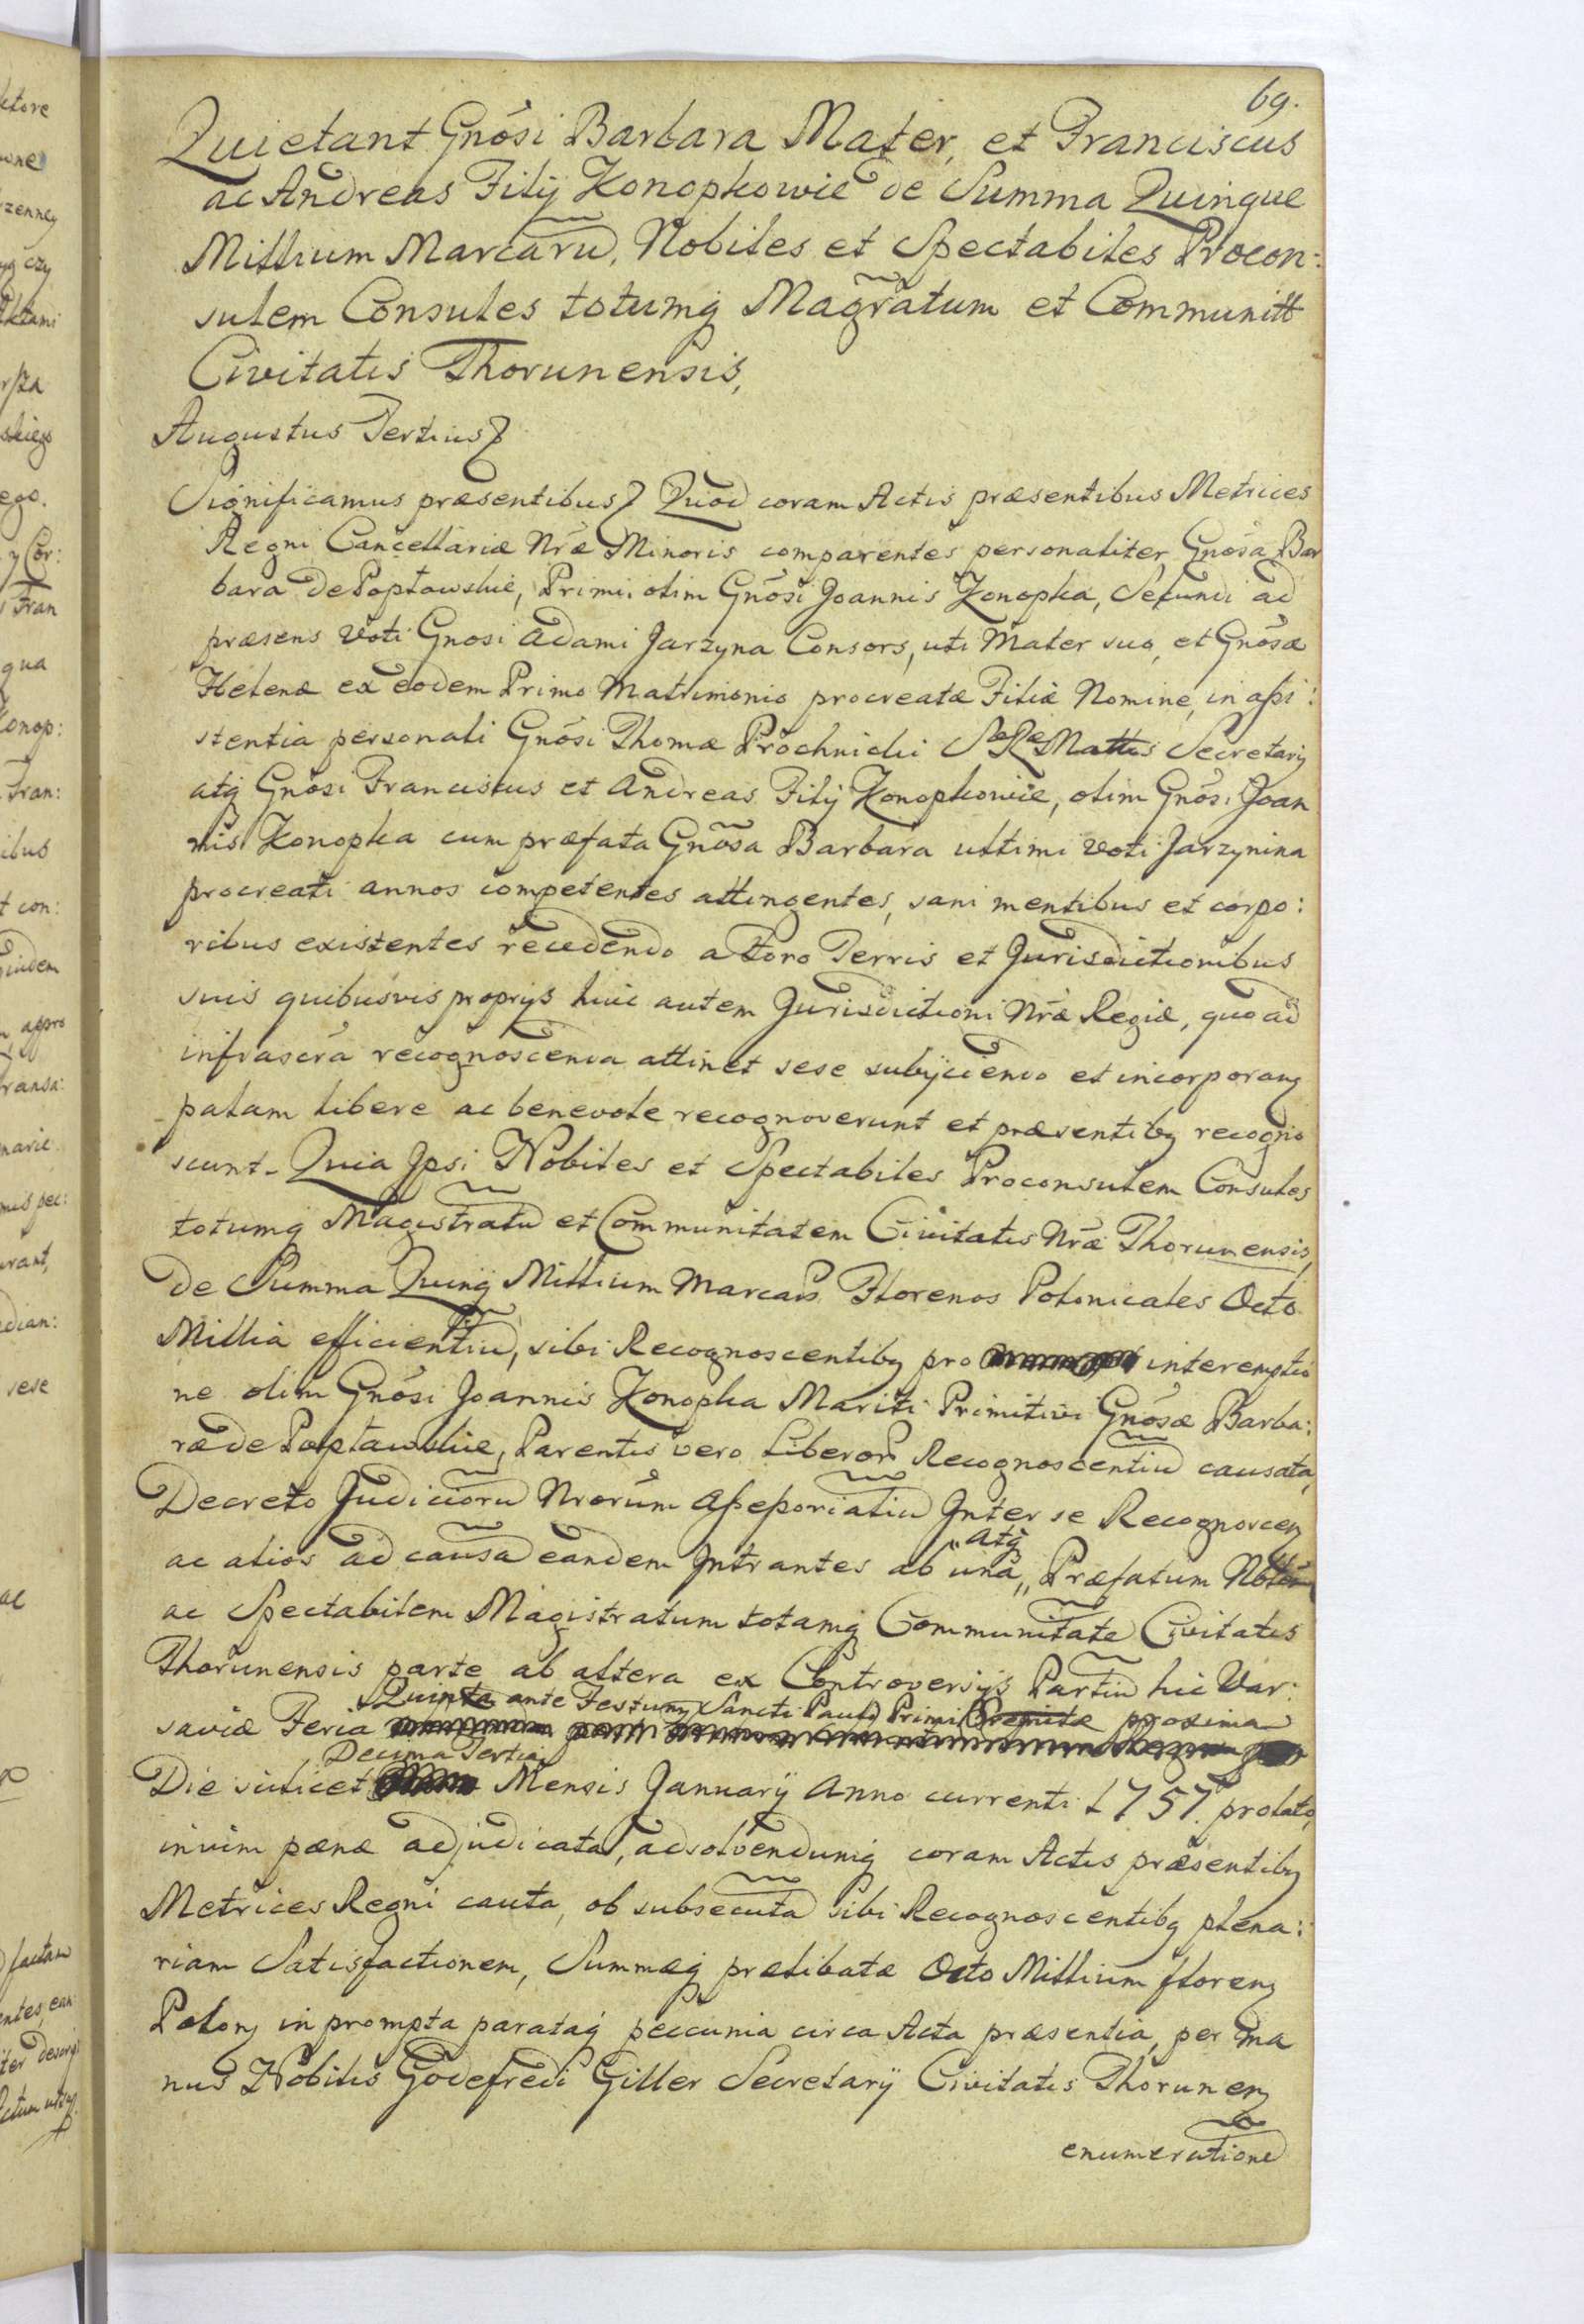 69.
Quietant Gnosi Barbara Mater, et Franciscus
ac Andreas Filij Konopkowie de Summa Quinque
Millium Marcaru, Nobiles et Spectabiles Procon:
sulem Consules totumq Magratum et Communitt
Civitatis Thorunensis,
Augustus Tertius
Significamus præsentibus Quod coram Actis præsentibus Metrices
Regni Cancellariæ Nræ Minoris comparentes personaliter Gnosa Bar
bara de Popławskie, Primi olim Gnosi Joannis Konopka, Secundi ad
præsens Voti Gnosi Adami Jarzyna Consors, uti Mater suo, et Gnosæ
Helenæ ex eodem Primo Matrimonio procreatæ Filiæ Nomine, in assi:
stentia personali Gnosi Thomæ Prochnicki SæRæ Mattis Secretarij
atq Gnosi Franciskus et Andreas Filij Konopkowie, olim Gnosi Joan
nis Konopka cum præfata Gnosa Barbara ultimi voti Jarzynina
procreati annos competentes attingentes, sani mentibus et corpo:
ribus existentes recedendo a Foro Terris et Jurisdictionibus
suis quibusvis proprijs huic autem Jurisdictioni Nræ Regiæ, quo ad
infrascra recognoscenda attinet sese subijciendo et incorporan
palam libere ac benevole recognoverunt et præsentibq recogno
scunt. Quia Ipsi Nobiles et Spectabiles Proconsulem Consules
totumq Magistratu et Communitatem Civitatis Nræ Thorunensis,
de Summa Quinq Millium Marcar Florenos Polonicales Octo
Millia efficientiu, sibi Recognoscentibq pro interemptio
ne olim Gnosi Joannis Konopka Mariti Primitivi Gnosæ Barba:
ræ de Popławskie, Parentis vero Liberor Recognoscentiu causata,
Decreto Judicioru Nrorum Assessorialiu Inter se Recognoscen
ac alios ad causa eandem Intrantes ab una, atq Præfatum Noblem
ac Spectabilem Magistratum totamq Communitate Civitatis
Thorunensis parte ab altera ex Controversijs Partiu hic Var:
saviæ Feria Quinta ante Festum Sancti Pauli Primi Eremitæ proxima
Die scilicet Decima Tertia Mensis Januarij Anno currenti 1757. prolato,
in vim pænæ adjudicata, adsolvendumq coram Actis præsentibq
Metrices Regni cauta, ob subsecuta sibi Recognoscentibq plena:
riam Satisfactionem, Summæq prælibatæ Octo Millium floren
Polon in prompta parataq peccunia circa Acta præsentia, per ma
nus Nobilis Godefredi Giller Secretarij Civitatis Thorunen
enumeratione